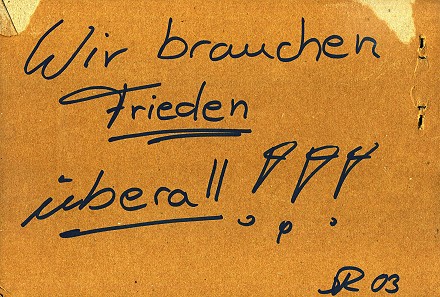 Wir brauchen
Frieden
überall!!!
SR 03